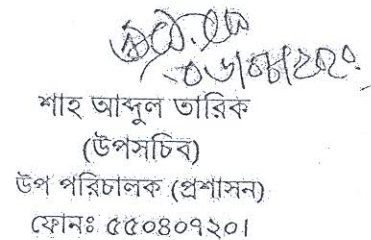 শাহ আব্দুল তারিক
(উপসচিব)
উপ পরিচালক (প্রশাসন)
ফোনঃ ৫৫০৪০৭২০।